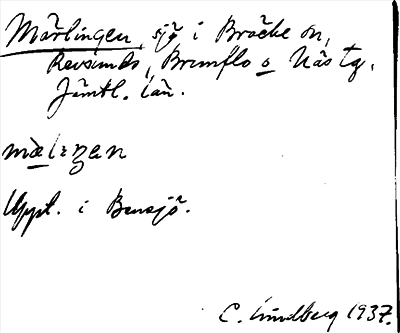 Märlingen, sjö i Bräcke sn,
Revsunds, Brunflo o Näs tg,
Jämtl. län.
Uppt. i Bensjö.
C. Lundberg 1937.